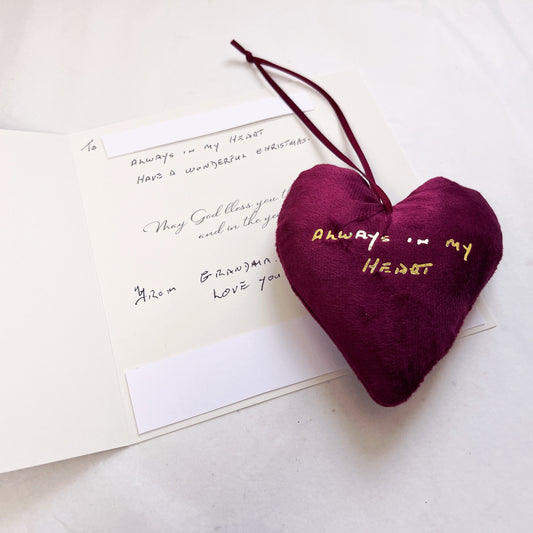 To
ALWAYS IN MY HEART
HAVE A WONDERFUL CHRISTMAS.
May God bless you
and in the
FROM GRANDMA.
LOVE YOU
ALWAYS IN MY
HEART